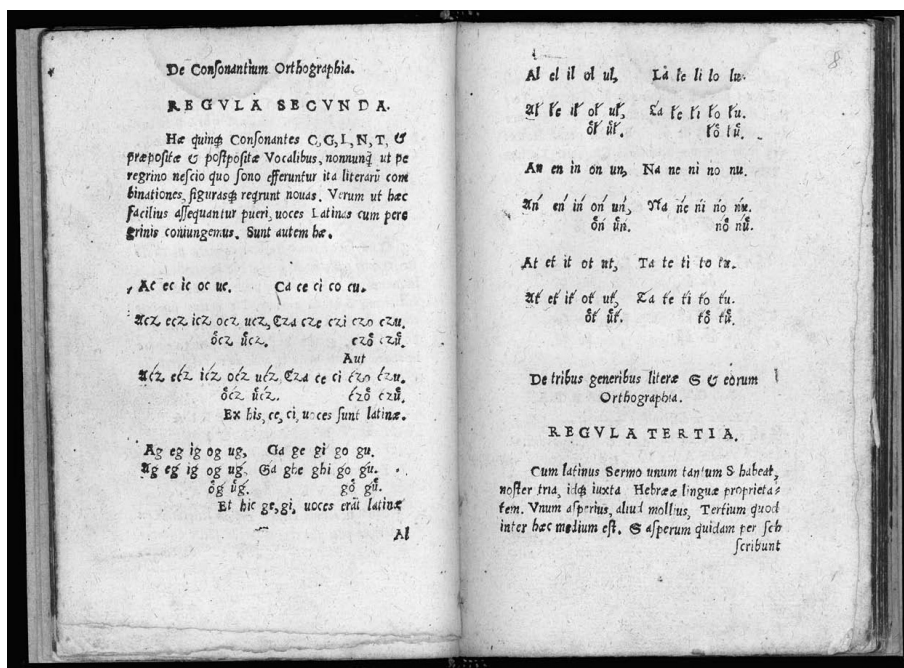 De Conſonantium Orthographia.
REGVLA SECVNDA.
Hæ quinqꝫ Conſonantes C, G, L, N, T, &
præpoſitæ & poſtpoſitæ Vocalibus, nonnunq̃ ut pe
regrino neſcio quo ſono efferuntur ita literarū com
binationes, figurasqꝫ reqrunt nouas. Verum ut hæc
facilius aſſequantur pueri, uoces Latinas cum pere
grinis coniungemus. Sunt autem hæ.
Ac ec ic oc uc. Ca ce ci co cu.
Acz ecz icz ocz ucz, Cza cze czi czo czu.
o̊cz ůcz. czo̊ czů.
Aut
Aćz ećz ićz oćz ućz, Cza ce ci ćzo ćzu.
o̊ćz ůćz. ćzo̊ ćzů.
Ex his, ce, ci, uoces ſunt latinæ.
Ag eg ig og ug, Ga ge gi go gu.
Ag eǵ ig og ug, Ga ghe ghi go gu.
o̊g ůg. go̊ gů.
Et hic ge, gi, uoces erāt latinæ
Al
8
Al el il ol ul, La le li lo lu.
Al̋ l̋e il̋ ol̋ ul̋, La l̋e l̋i l̋o l̋u.
o̊l̋ ůl̋. l̋o̊ l̋ů.
An en in on un, Na ne ni no nu.
Ań eń iń oń uń, Ńa ńe ńi ńo ńu.
o̊ń ůń. ńo̊ ńů.
At et it ot ut, Ta te ti to tu.
At́ et́ it́ ot́ ut́, T́a t́e t́i t́o t́u.
o̊t́ ůt́. t́o̊ t́ů.
De tribus generibus literæ S & eorum
Orthographia.
REGVLA TERTIA.
Cum latinus Sermo unum tantum S habeat,
noſter tria, idqꝫ iuxta Hebrææ linguæ proprieta⸗
tem. Vnum aſperius, aliud mollius, Tertium quod
inter hæc medium eſt. S aſperum quidam per ſch
ſcribunt